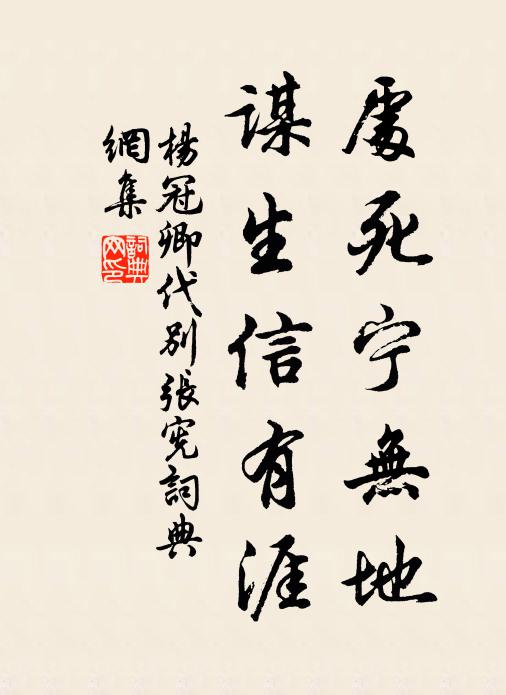 處死宁無地
謀生信有涯
楊冠卿代别張宪詞典
網集
詞典
网印